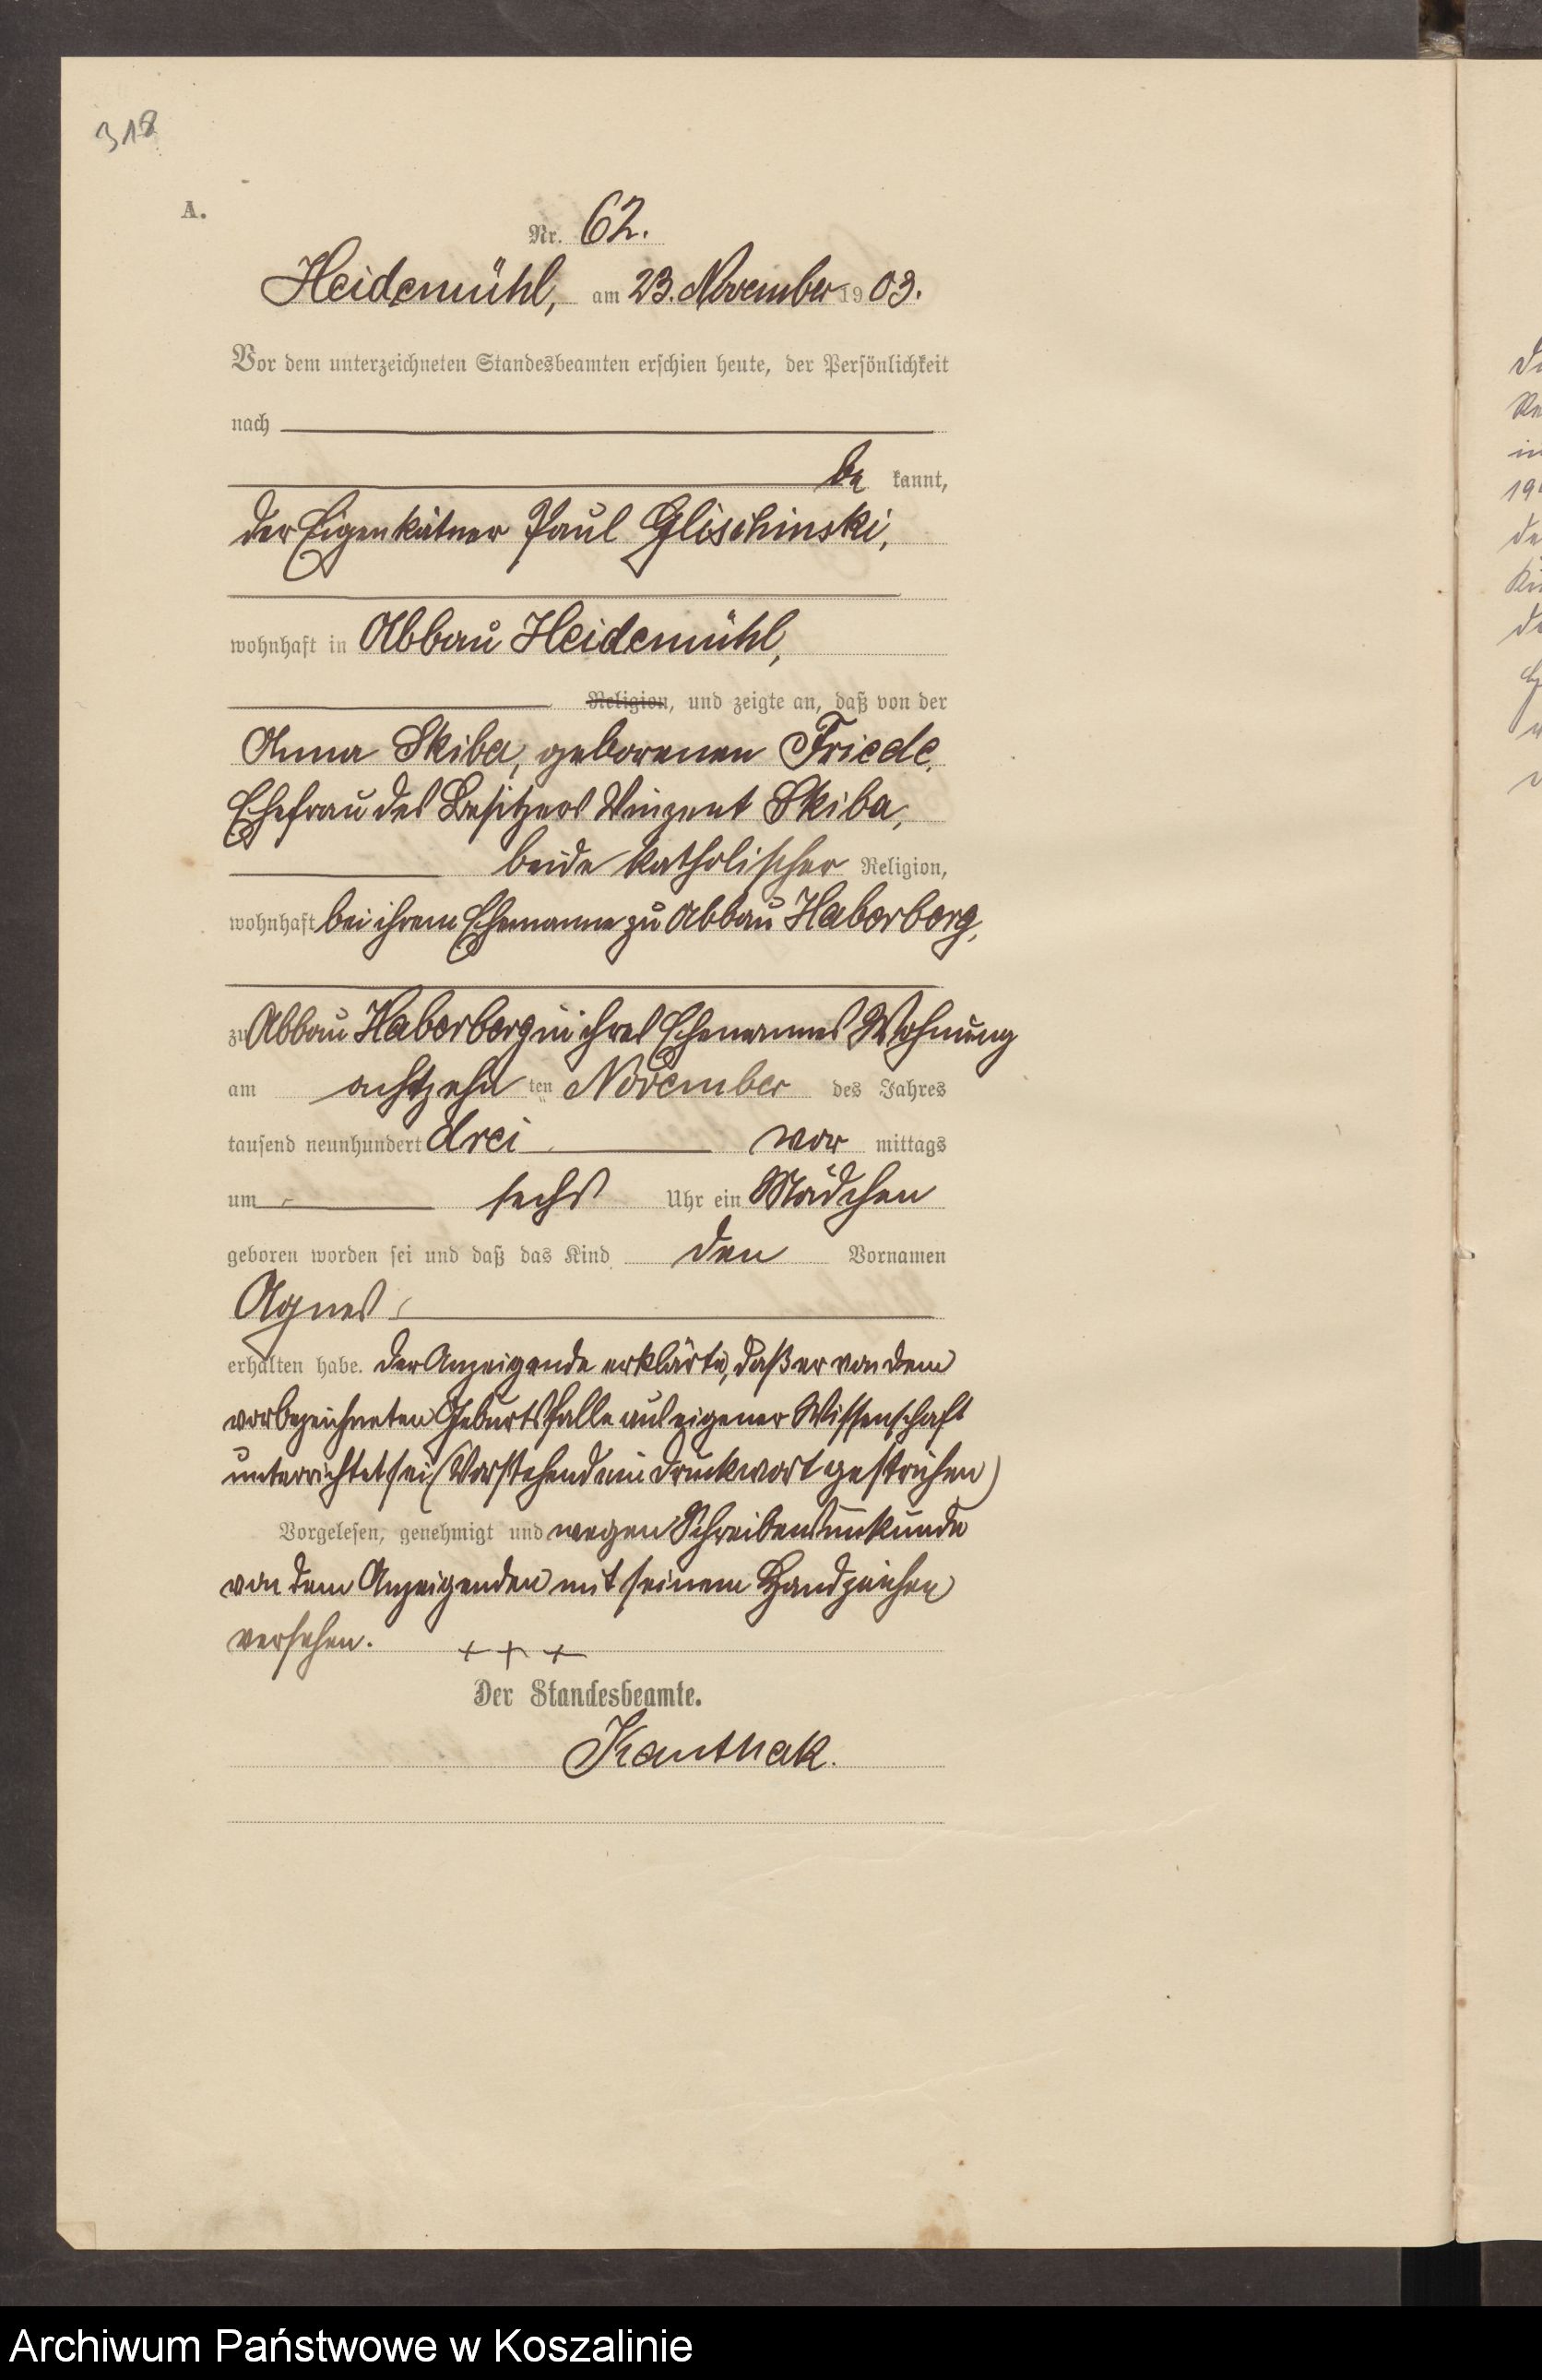 318
A.
Nr. 62.
Heidemühl, am 23. November 1903.
Vor dem unterzeichneten Standesbeamten erschien heute, der Persönlichkeit
nach
be kannt,
der Eigenkätner Paul Glischinski,
wohnhaft in Abbau Heidemühl,
Religion, und zeigte an, daß von der
Anna Skiba, geborenen Friede,
Ehefrau des Besitzers Vinzent Skiba,
beide katholischer Religion,
wohnhaft bei ihrem Ehemanne zu Abbau Haberberg,
zu Abbau Haberberg in ihres Ehemannes Wohnung
am achtzehn ten November des Jahres
tausend neunhundert drei vor mittags
um sechs Uhr ein Mädchen
geboren worden sei und daß das Kind den Vornamen
Agnes
erhalten habe. Der Anzeigende erklärte, daß er von dem
vorbezeichneten Geburtsfalle aus eigener Wissenschaft
unterrichtet sei (Vorstehend ein Druckwort gestrichen)
Vorgelesen, genehmigt und wegen Schreibensunkunde
von dem Anzeigenden mit seinem Handzeichen
versehen. + + +
Der Standesbeamte.
Kanthak.
Archiwum Państwowe w Koszalinie